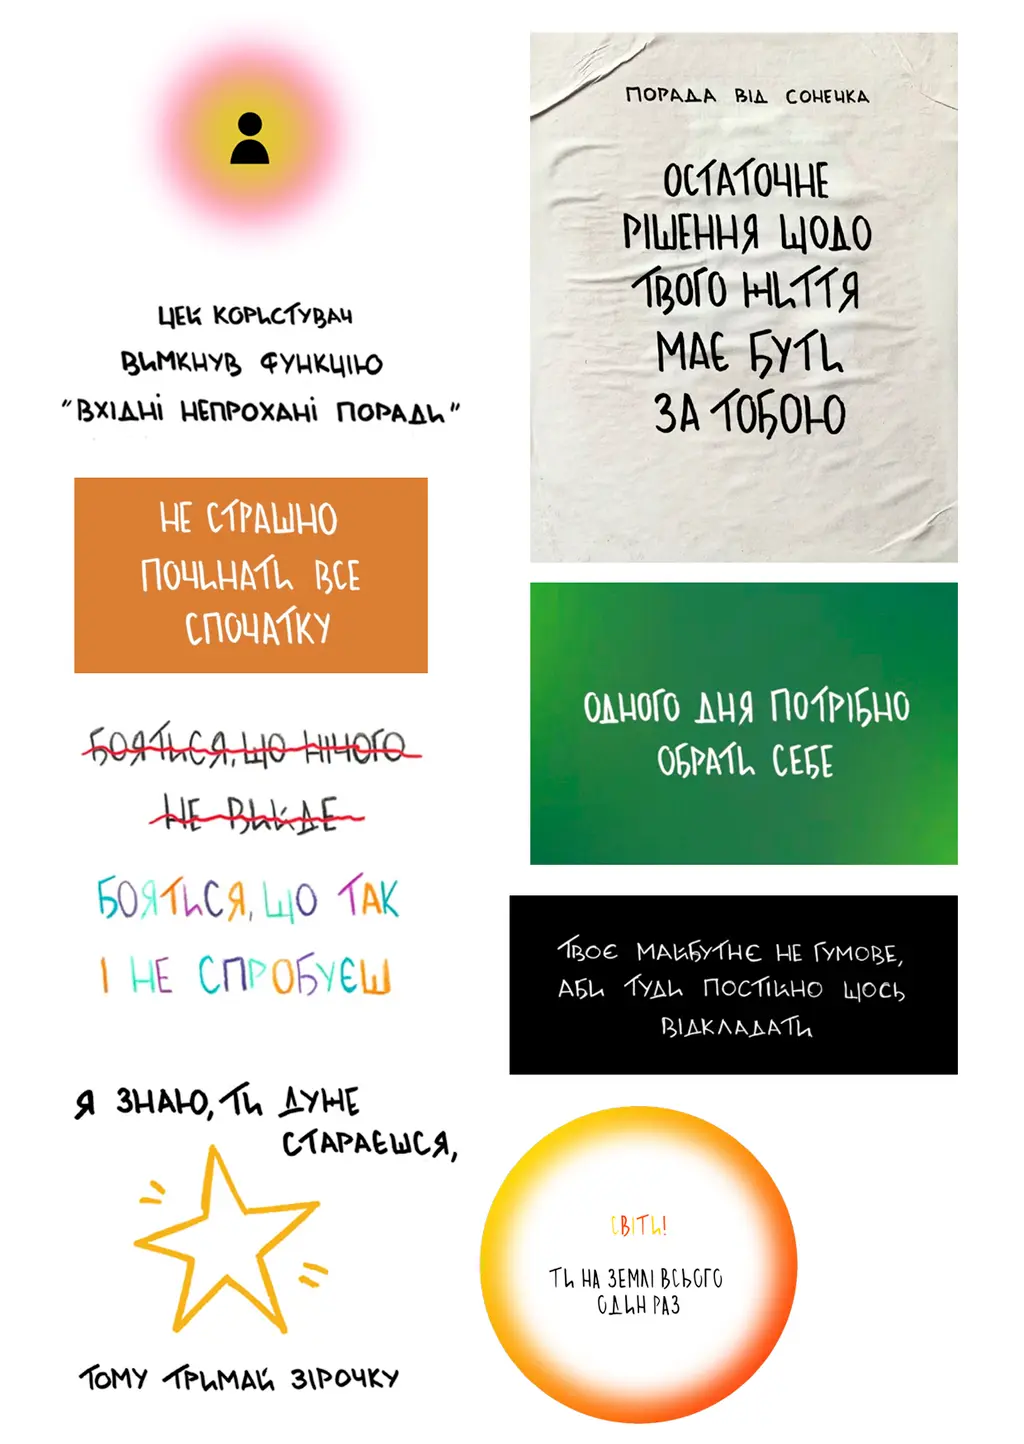 ЦЕЙ КОРИСТУВАЧ
ВИМКНУВ ФУНКЦІЮ
"ВХІДНІ НЕПРОХАНІ ПОРАДИ"
НЕ СТРАШНО
ПОЧИНАТИ ВСЕ
СПОЧАТКУ
БОЯТИСЯ, ЩО НІЧОГО
НЕ ВИЙДЕ
БОЯТЬСЯ, ЩО ТАК
І НЕ СПРОБУЄШ
Я ЗНАЮ, ТИ ДУЖЕ
СТАРАЄШСЯ,
ТОМУ ТРИМАЙ ЗІРОЧКУ
ПОРАДА ВІД СОНЕЧКА
ОСТАТОЧНЕ
РІШЕННЯ ЩОДО
ТВОГО ЖИТТЯ
МАЄ БУТИ
ЗА ТОБОЮ
ОДНОГО ДНЯ ПОТРІБНО
ОБРАТИ СЕБЕ
ТВОЄ МАЙБУТНЄ НЕ ГУМОВЕ,
АБИ ТУДИ ПОСТІЙНО ЩОСЬ
ВІДКЛАДАТИ
СВІТИ!
ТИ НА ЗЕМЛІ ВСЬОГО
ОДИН РАЗ